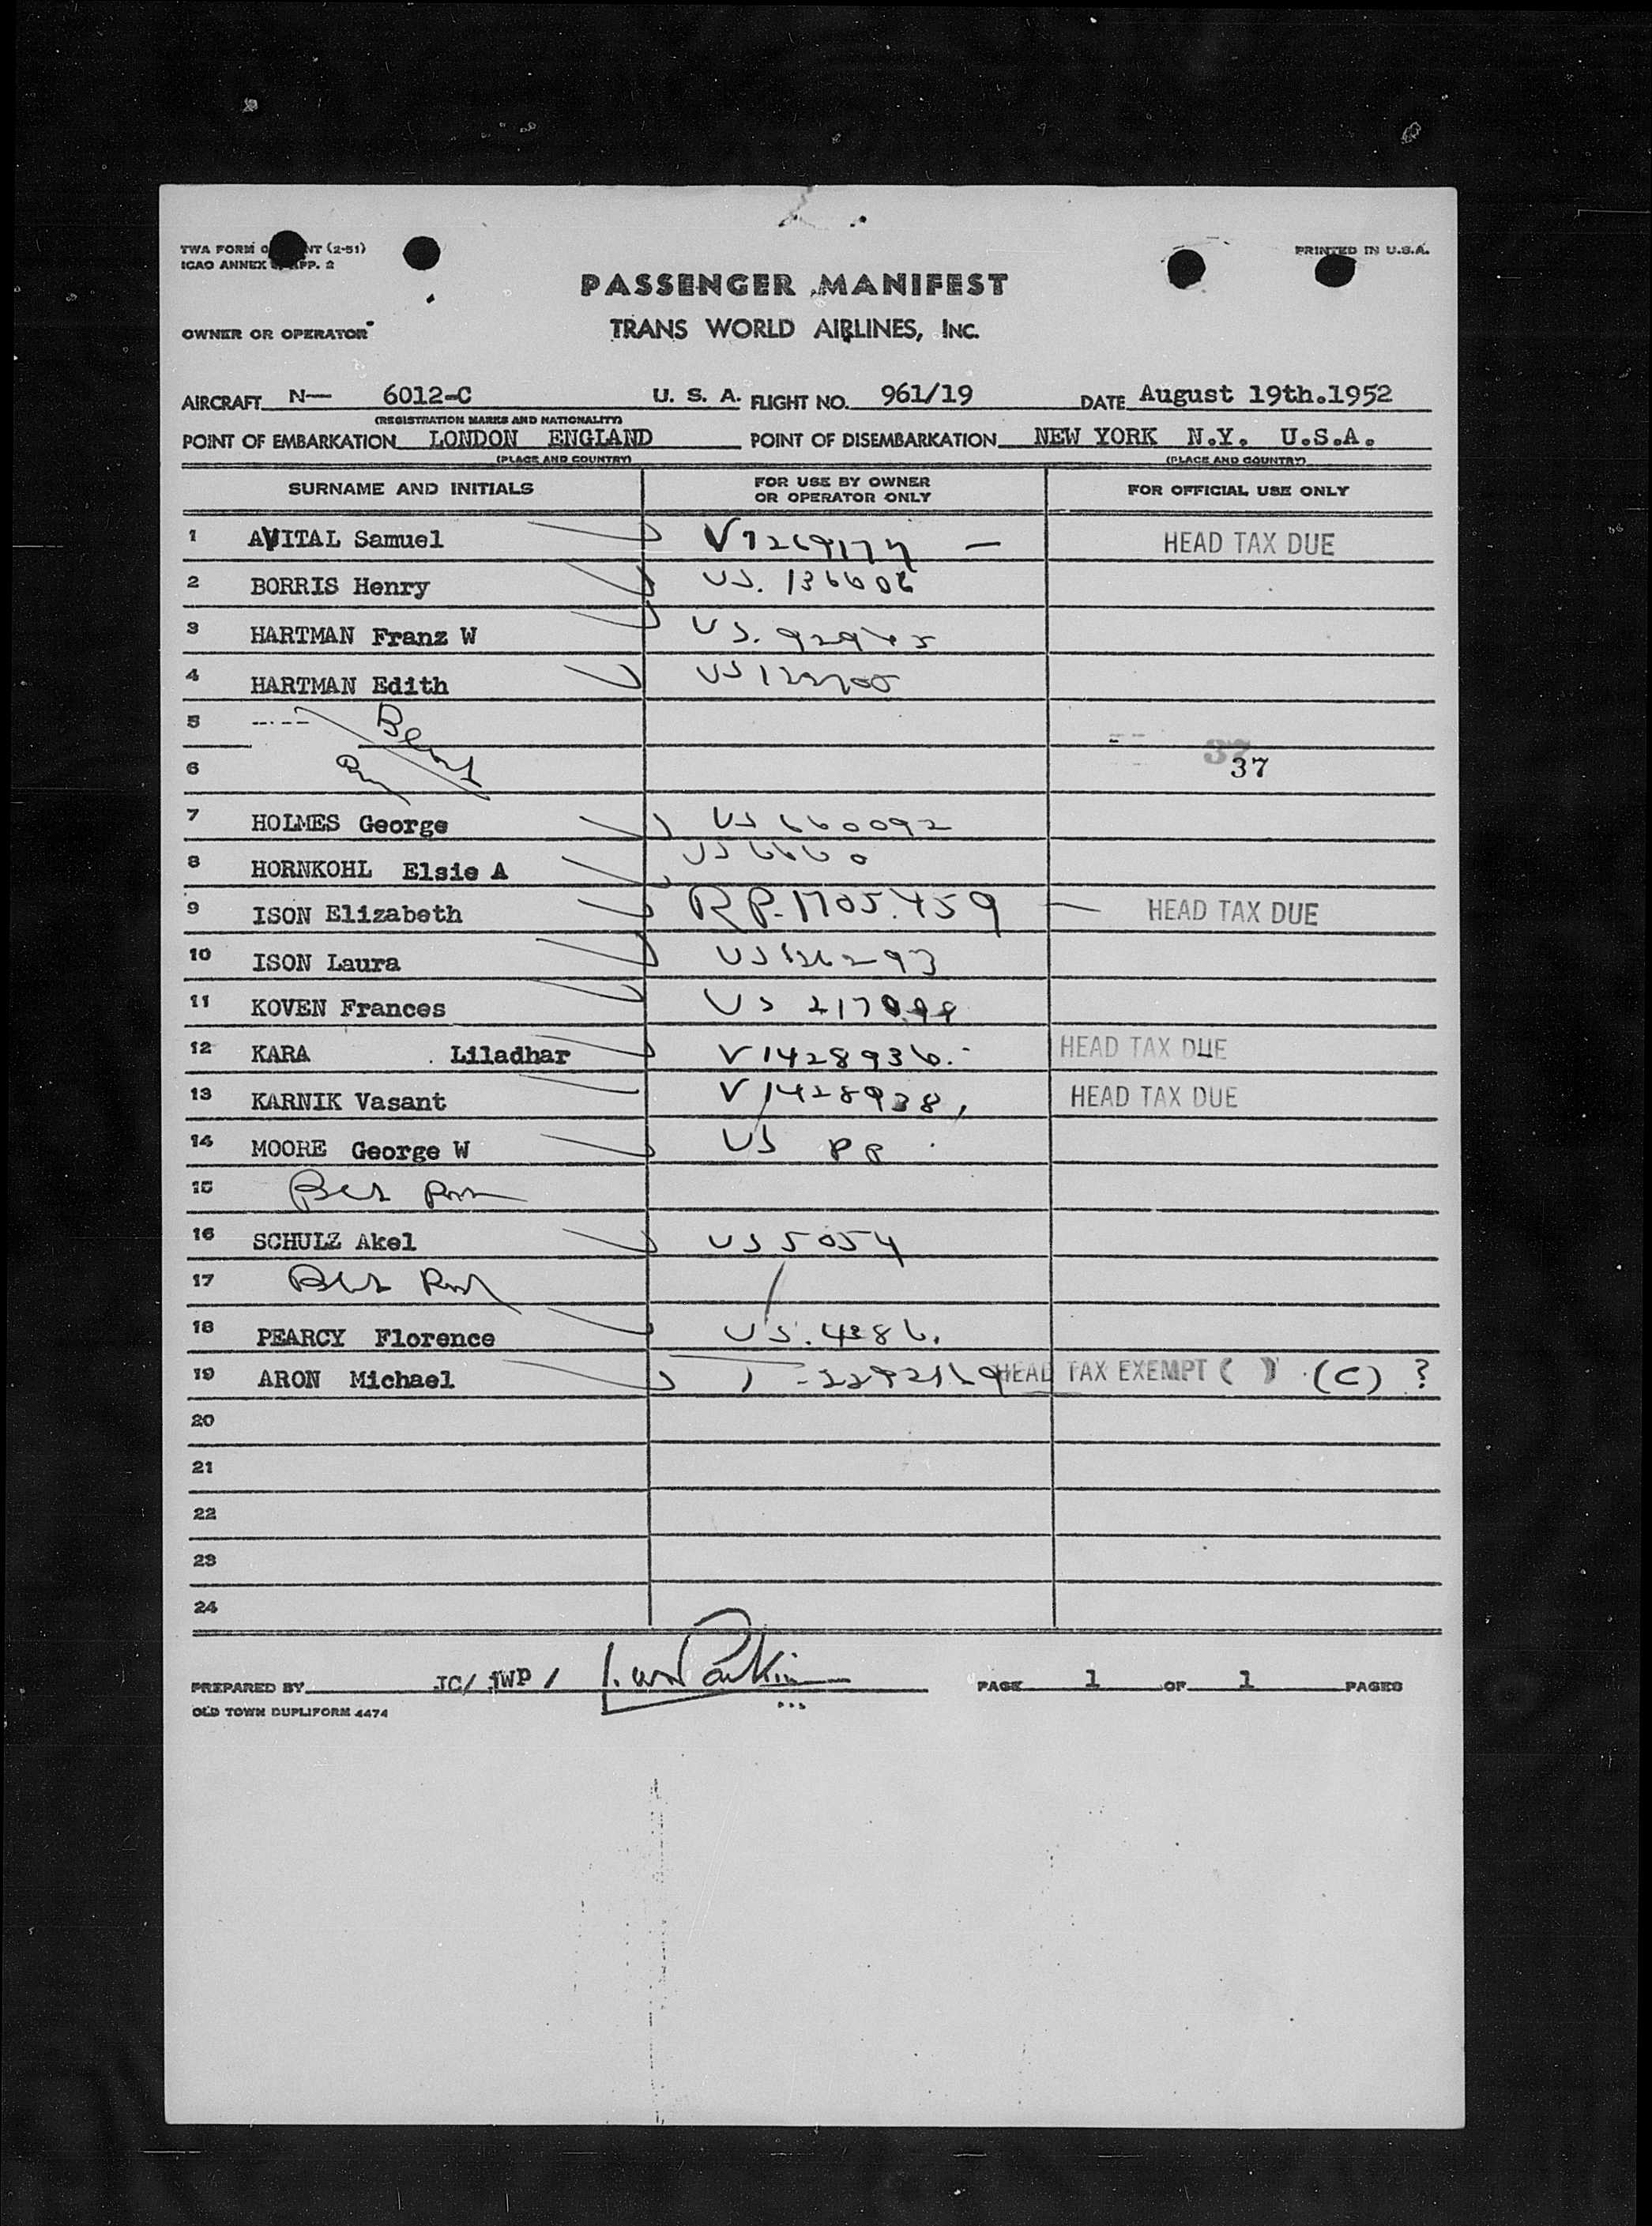 TWA FORM NT (2-51)
ICAO ANNEX PP. 2
PRINTED IN U.S.A.
PASSENGER MANIFEST
OWNER OR OPERATOR TRANS WORLD AIRLINES, INC.
AIRCRAFT N— 6012-C U. S. A. FLIGHT NO. 961/19 DATE August 19th.1952
(REGISTRATION MARKS AND NATIONALITY)
POINT OF EMBARKATION LONDON ENGLAND POINT OF DISEMBARKATION NEW YORK N.Y. U.S.A.
(PLACE AND COUNTRY) (PLACE AND COUNTRY)
SURNAME AND INITIALS FOR USE BY OWNER OR OPERATOR ONLY FOR OFFICIAL USE ONLY
1 AVITAL Samuel HEAD TAX DUE
2 BORRIS Henry US.
3 HARTMAN Franz W US.
4 HARTMAN Edith US
5
6 37 37
7 HOLMES George US 660092
8 HORNKOHL Elsie A US
9 ISON Elizabeth RP.1705.459 — HEAD TAX DUE
10 ISON Laura US
11 KOVEN Frances US
12 KARA Liladhar V1428936. HEAD TAX DUE
13 KARNIK Vasant V1428938, HEAD TAX DUE
14 MOORE George W US PP
15
16 SCHULZ Akel US 5054
17
18 PEARCY Florence US.4386.
19 ARON Michael HEAD TAX EXEMPT ( ) (C) ?
20
21
22
23
24
PREPARED BY JC/ JWP / PAGE 1 OF 1 PAGES
OLD TOWN DUPLIFORM 4474